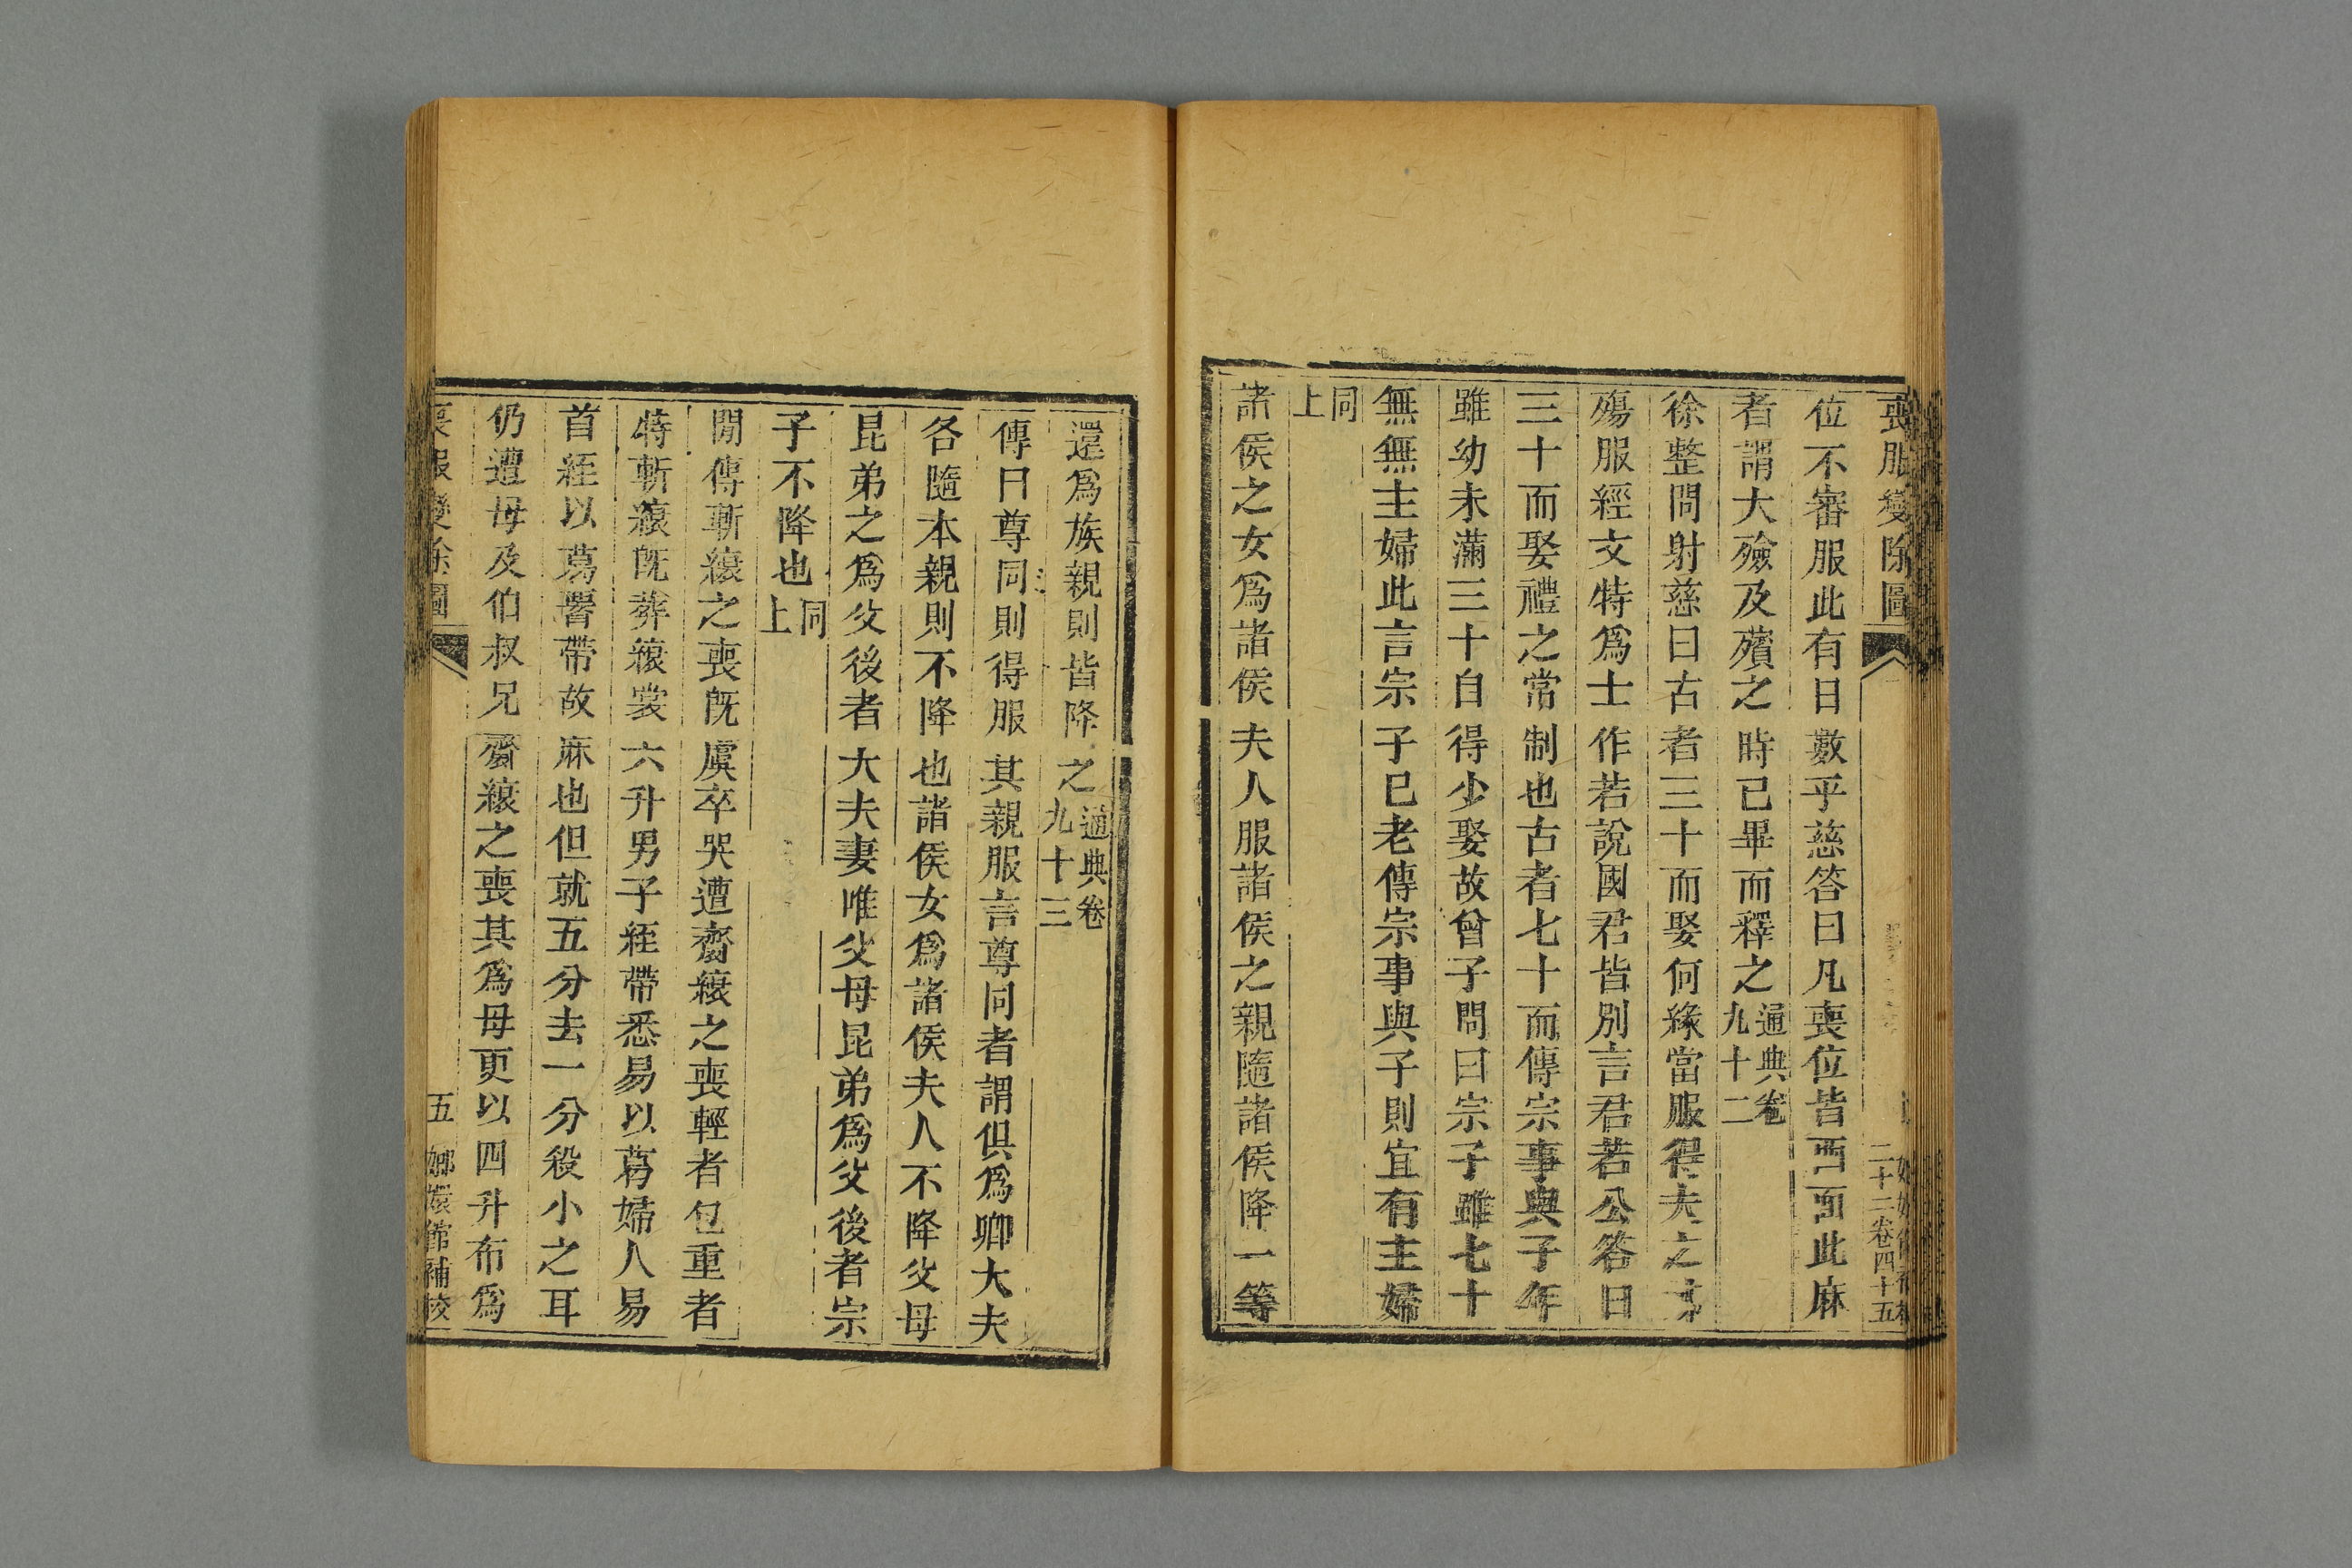 喪服變除圖
二十二卷四十五
位不審服此有日數乎慈答曰凡喪位皆西面此麻
者謂大殮及殯之時已畢而釋之通典卷九十二
徐整問射慈曰古者三十而娶何緣當服得夫之
殤服經文特爲士作若說國君皆別言君若公答曰
三十而娶禮之常制也古者七十而傳宗事與子年
雖幼未滿三十自得少娶故曾子問曰宗子雖七十
無無主婦此言宗子已老傳宗事與子則宜有主婦
同上
諸侯之女爲諸侯夫人服諸侯之親隨諸侯降一等
還爲族親則皆降之通典卷九十三
傳曰尊同則得服其親服言尊同者謂俱爲卿大夫
各隨本親則不降也諸侯女爲諸侯夫人不降父母
昆弟之爲父後者大夫妻唯父母昆弟爲父後者宗
子不降也同上
閒傳斬縗之喪旣虞卒哭遭齋縗之喪輕者包重者
特斬縗旣葬縗裳六升男子絰帶悉易以葛婦人易
首絰以葛署帶故麻也但就五分去一分殺小之耳
仍遭母及伯叔兄齋縗之喪其爲母更以四升布爲
喪服變除圖
五
嫏嬛館補校